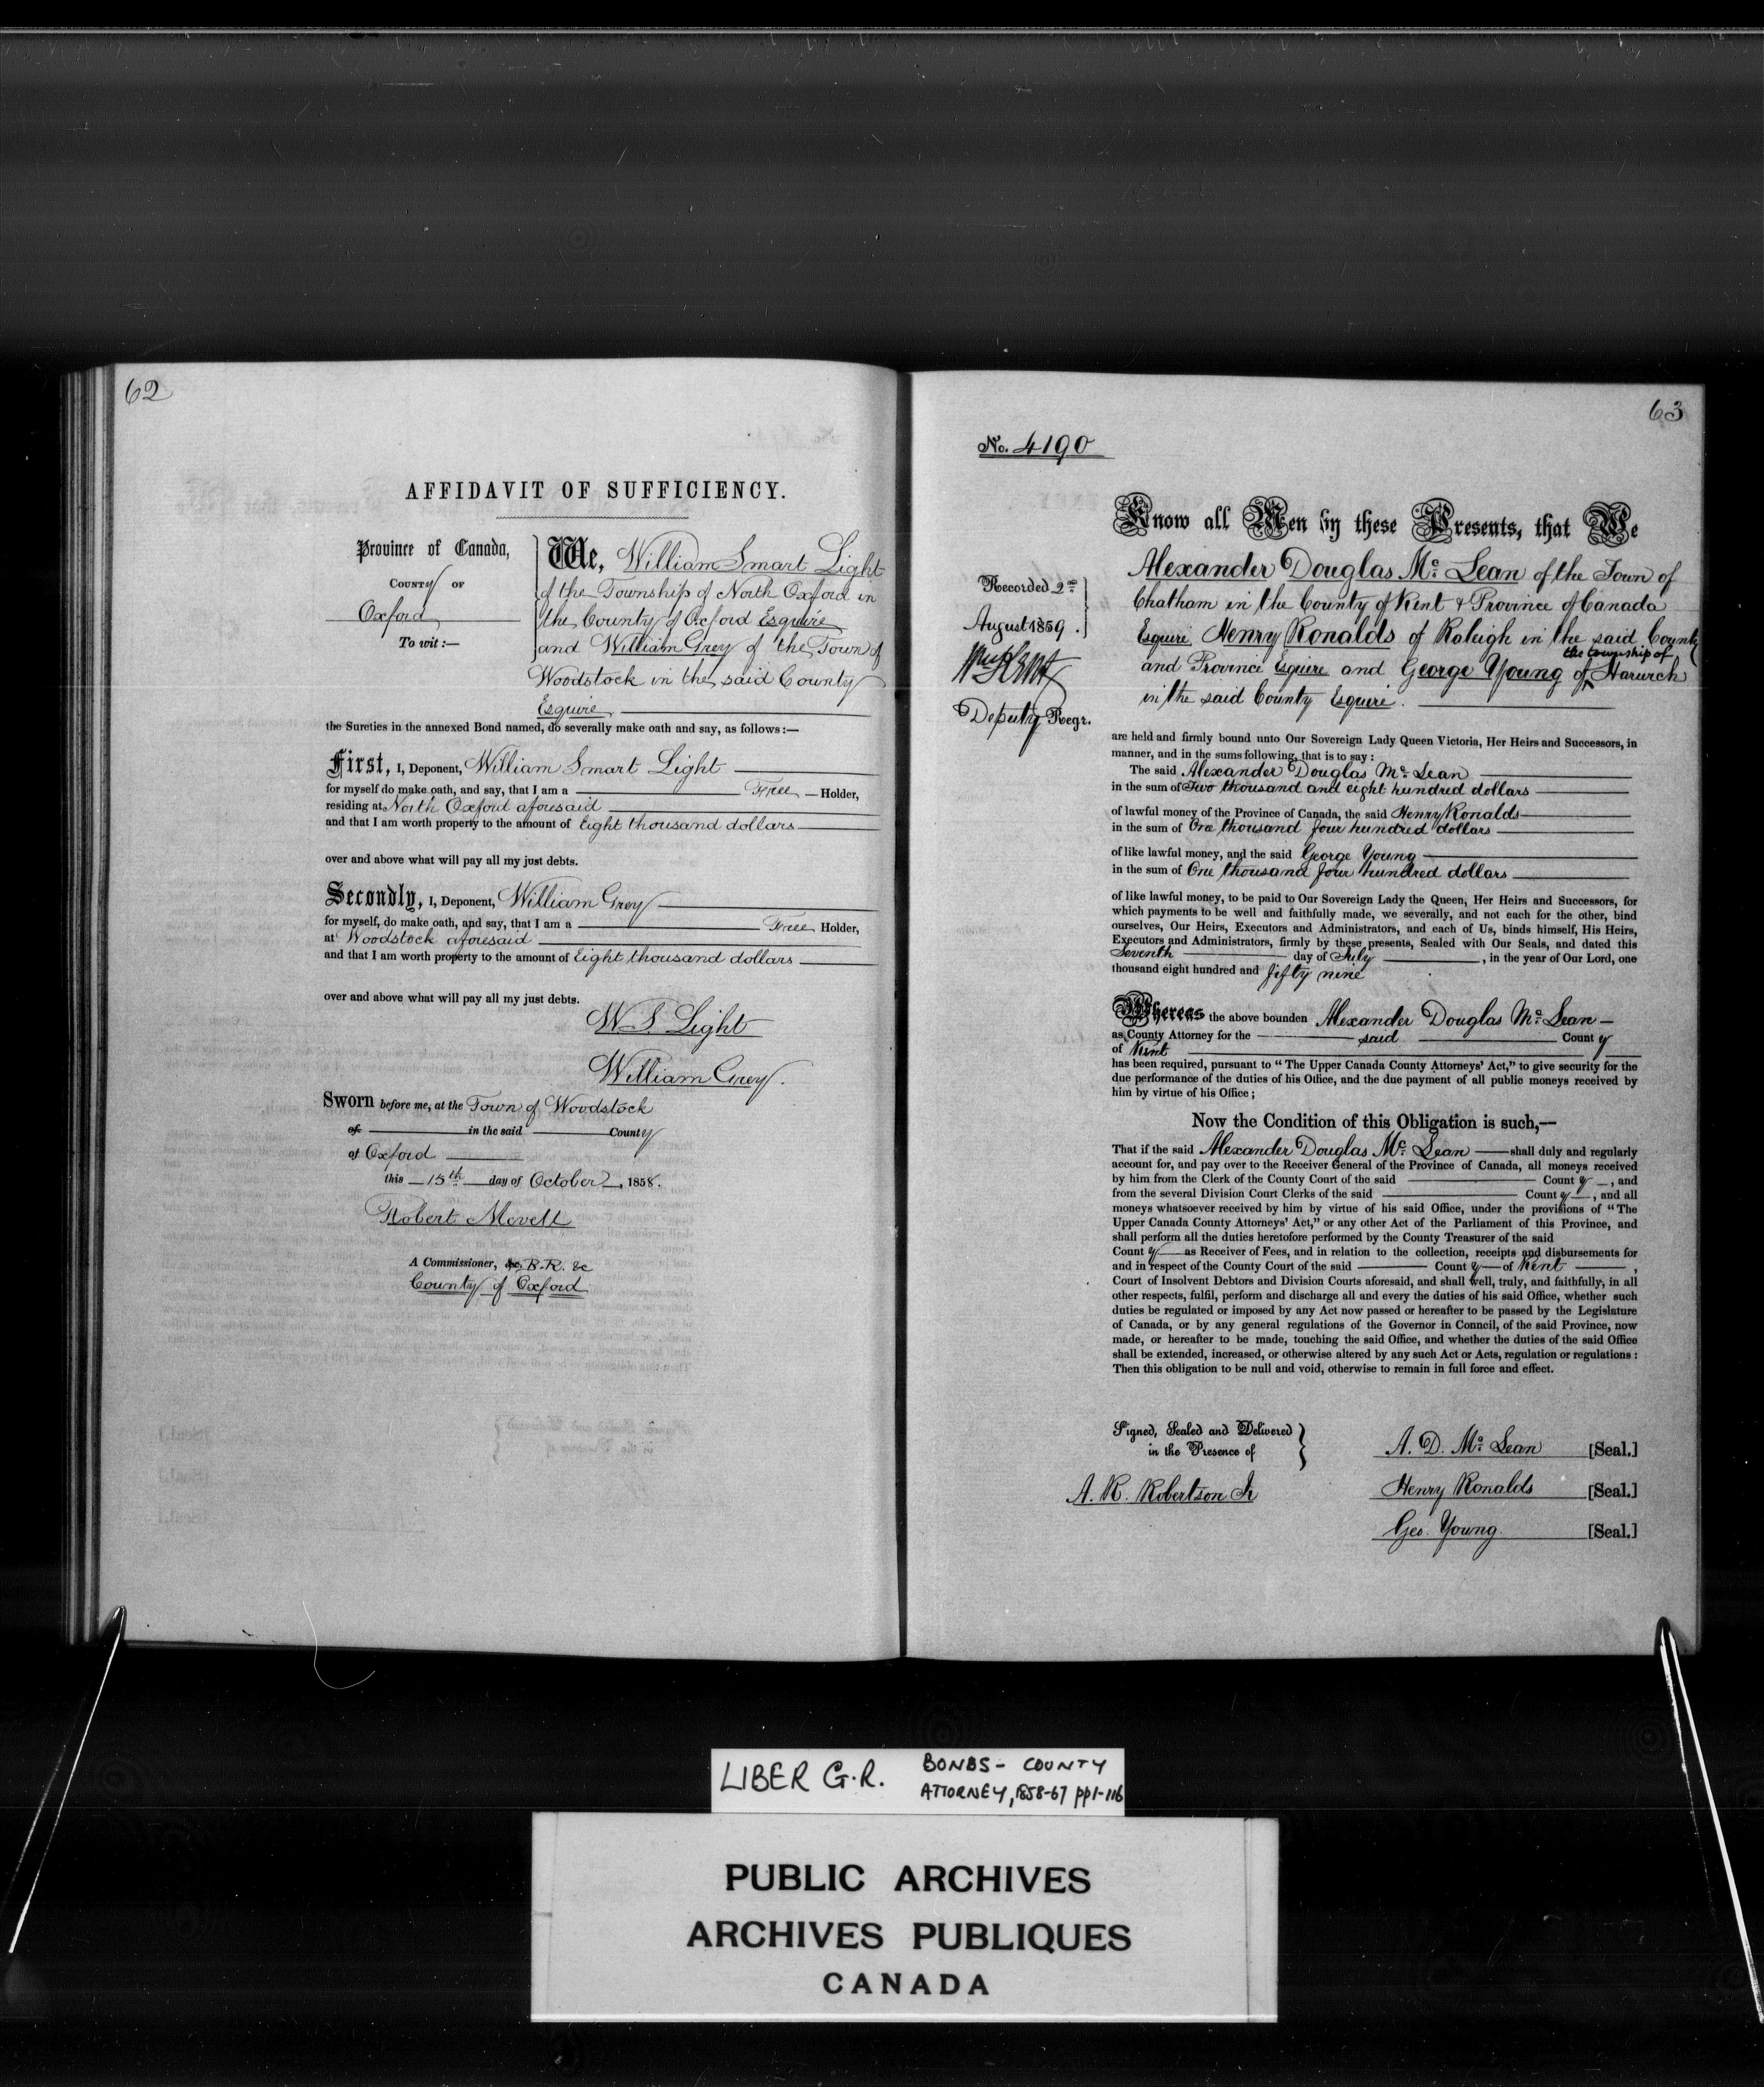 62
AFFIDAVIT OF SUFFICIENCY.
Province of Canada,
COUNTY OF
Oxford
To wit:—
We, William Smart Light
of the Township of North Oxford in
the County of Oxford Esquire
and William Grey of the Town of
Woodstock in the said County
Esquire
the Sureties in the annexed Bond named, do severally make oath and say, as follows:—
First, I, Deponent, William Smart Light
for myself do make oath, and say, that I am a Free Holder,
residing at North Oxford aforesaid
and that I am worth property to the amount of Eight thousand dollars
over and above what will pay all my just debts.
Secondly, I, Deponent, William Grey
for myself, do make oath, and say, that I am a Free Holder,
at Woodstock aforesaid
and that I am worth property to the amount of Eight thousand dollars
over and above what will pay all my just debts.
W. S. Light
William Grey.
Sworn before me, at the Town of Woodstock
of in the said County
of Oxford
this 15th day of October, 1858.
Robert
A Commissioner, &c. B.R. &c
County of Oxford
63
No. 4190
Recorded 2nd
August 1859.
Deputy Regr.
Know all Men by these Presents, that We
Alexander Douglas Mc. Lean of the Town of
Chatham in the County of Kent & Province of Canada
Esquire Henry Ronalds of Raleigh in the said County
the township of
and Province Esquire and George Young of Harwich
in the said County Esquire.
are held and firmly bound unto Our Sovereign Lady Queen Victoria, Her Heirs and Successors, in
manner, and in the sums following, that is to say:
The said Alexander Douglas Mc. Lean
in the sum of Two thousand and eight hundred dollars
of lawful money of the Province of Canada, the said Henry Ronalds
in the sum of One thousand four hundred dollars
of like lawful money, and the said George Young
in the sum of One thousand four hundred dollars
of like lawful money, to be paid to Our Sovereign Lady the Queen, Her Heirs and Successors, for
which payments to be well and faithfully made, we severally, and not each for the other, bind
ourselves, Our Heirs, Executors and Administrators, and each of Us, binds himself, His Heirs,
Executors and Administrators, firmly by these presents, Sealed with Our Seals, and dated this
Seventh day of July, in the year of Our Lord, one
thousand eight hundred and fifty nine
Whereas the above bounden Alexander Douglas Mc. Lean—
as County Attorney for the said County
of Kent
has been required, pursuant to "The Upper Canada County Attorneys' Act," to give security for the
due performance of the duties of his Office, and the due payment of all public moneys received by
him by virtue of his Office;
Now the Condition of this Obligation is such,—
That if the said Alexander Douglas Mc. Lean shall duly and regularly
account for, and pay over to the Receiver General of the Province of Canada, all moneys received
by him from the Clerk of the County Court of the said County, and
from the several Division Court Clerks of the said County, and all
moneys whatsoever received by him by virtue of his said Office, under the provisions of "The
Upper Canada County Attorneys' Act," or any other Act of the Parliament of this Province, and
shall perform all the duties heretofore performed by the County Treasurer of the said
County as Receiver of Fees, and in relation to the collection, receipts and disbursements for
and in respect of the County Court of the said County of Kent,
Court of Insolvent Debtors and Division Courts aforesaid, and shall well, truly, and faithfully, in all
other respects, fulfil, perform and discharge all and every the duties of his said Office, whether such
duties be regulated or imposed by any Act now passed or hereafter to be passed by the Legislature
of Canada, or by any general regulations of the Governor in Council, of the said Province, now
made, or hereafter to be made, touching the said Office, and whether the duties of the said Office
shall be extended, increased, or otherwise altered by any such Act or Acts, regulation or regulations:
Then this obligation to be null and void, otherwise to remain in full force and effect.
Signed, Sealed and Delivered
in the Presence of
A. R. Robertson Jr
A. D. Mc. Lean [Seal.]
Henry Ronalds [Seal.]
Geo. Young. [Seal.]
LIBER G.R. BONDS - COUNTY
ATTORNEY, 1858-67 pp1-116
PUBLIC ARCHIVES
ARCHIVES PUBLIQUES
CANADA